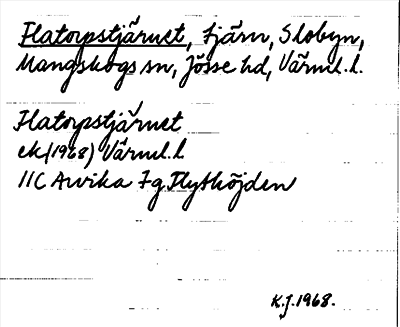 Flatorpstjärnet, tjärn, Slobyn,
Mangskogs sn, Jösse hd, Värml. l.
Flatorpstjärnet
ek (1968) Värml. l
11C Arvika 7g Flythöjden
K.J. 1968.